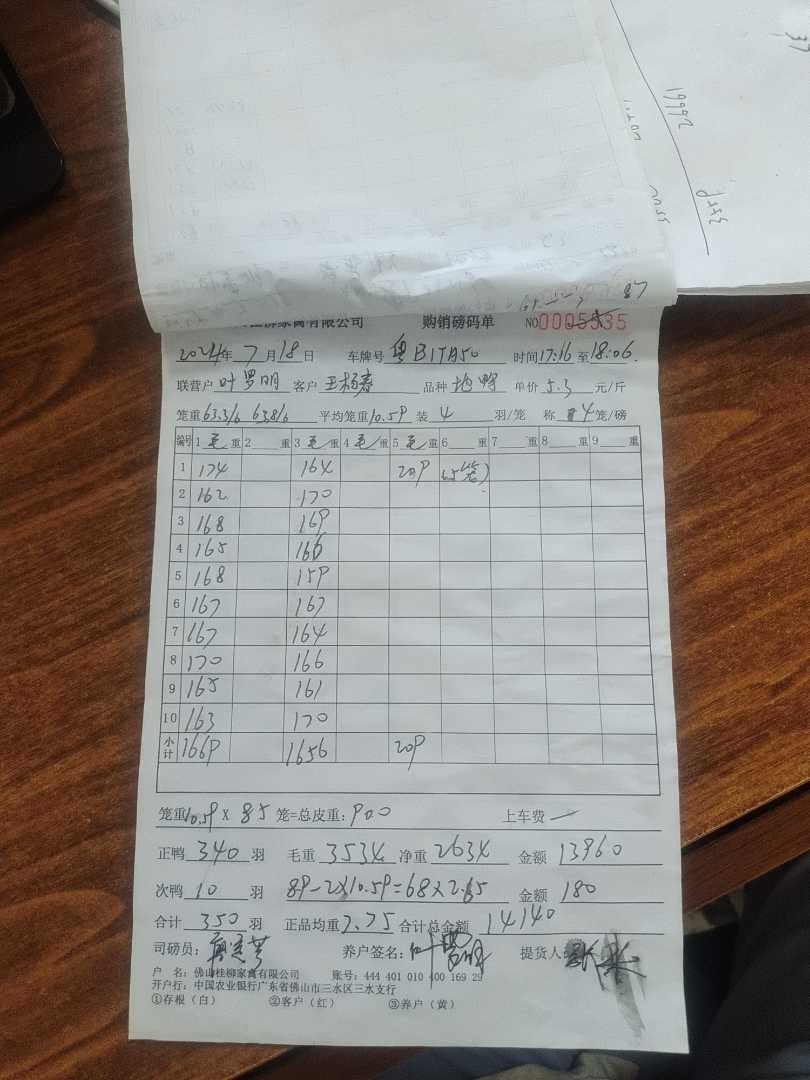 桂柳家禽有限公司 购销磅码单 NO0005535
2024年7月18日 车牌号 粤B1TA50 时间17:16至18:06
联营户 叶罗明 客户 王杨春 品种 地鸭 单价 5.3 元/斤
笼重63.3/6 63.8/6 平均笼重10.59 装 4 羽/笼 称 4笼/磅
编号 1毛重 2 重 3毛重 4毛重 5毛重 6 重 7 重 8 重 9 重
1 174 164 209 (5笼)
2 162 170
3 168 169
4 165 166
5 168 159
6 167 167
7 167 164
8 170 166
9 165 161
10 163 170
小计 1669 1656 209
笼重10.59X 85 笼=总皮重:900 上车费 一
正鸭 340 羽 毛重 3534 净重 2634 金额 13960
次鸭 10 羽 89-2X10.59=68X2.65 金额 180
合计 350 羽 正品均重7.75 合计总金额 14140
司磅员: 养户签名:叶罗明 提货人
户 名: 佛山桂柳家禽有限公司 账号: 444 401 010 400 169 29
开户行: 中国农业银行广东省佛山市三水区三水支行
①存根(白) ②客户(红) ③养户(黄)